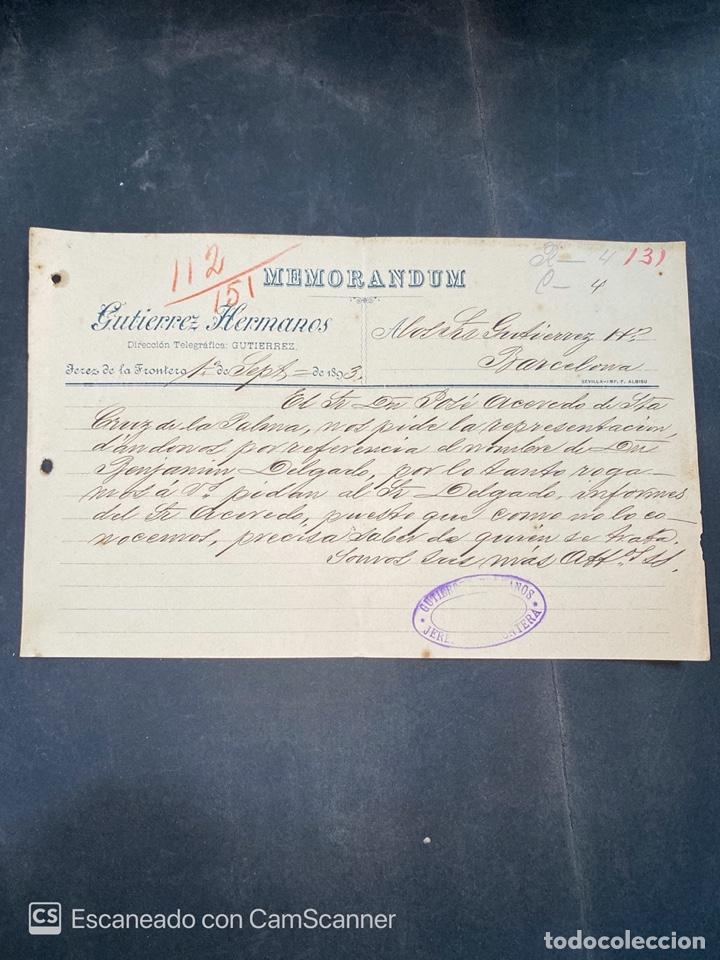 112
151
R - 4 131
C - 4
MEMORANDUM
Gutierrez Hermanos
Dirección Telegráfica: GUTIERREZ.
Jerez de la Frontera 1º de Sept de 1893.
A los Srs Gutierrez Hº
Barcelona
SEVILLA-IMP. F. ALBISU
El Sr Dn José Acevedo de Sta
Cruz de la Palma, nos pide la representacion,
dándonos por referencia el nombre de Dn
Benjamin Delgado, por lo tanto roga-
mos á Vs. pidan al Sr Delgado, informes
del Sr Acevedo, puesto que como no lo co-
nocemos, precisa saber de quien se trata.
Somos sus más Affmos
GUTIER ANOS
JERE NTERA
CS Escaneado con CamScanner
todocoleccion